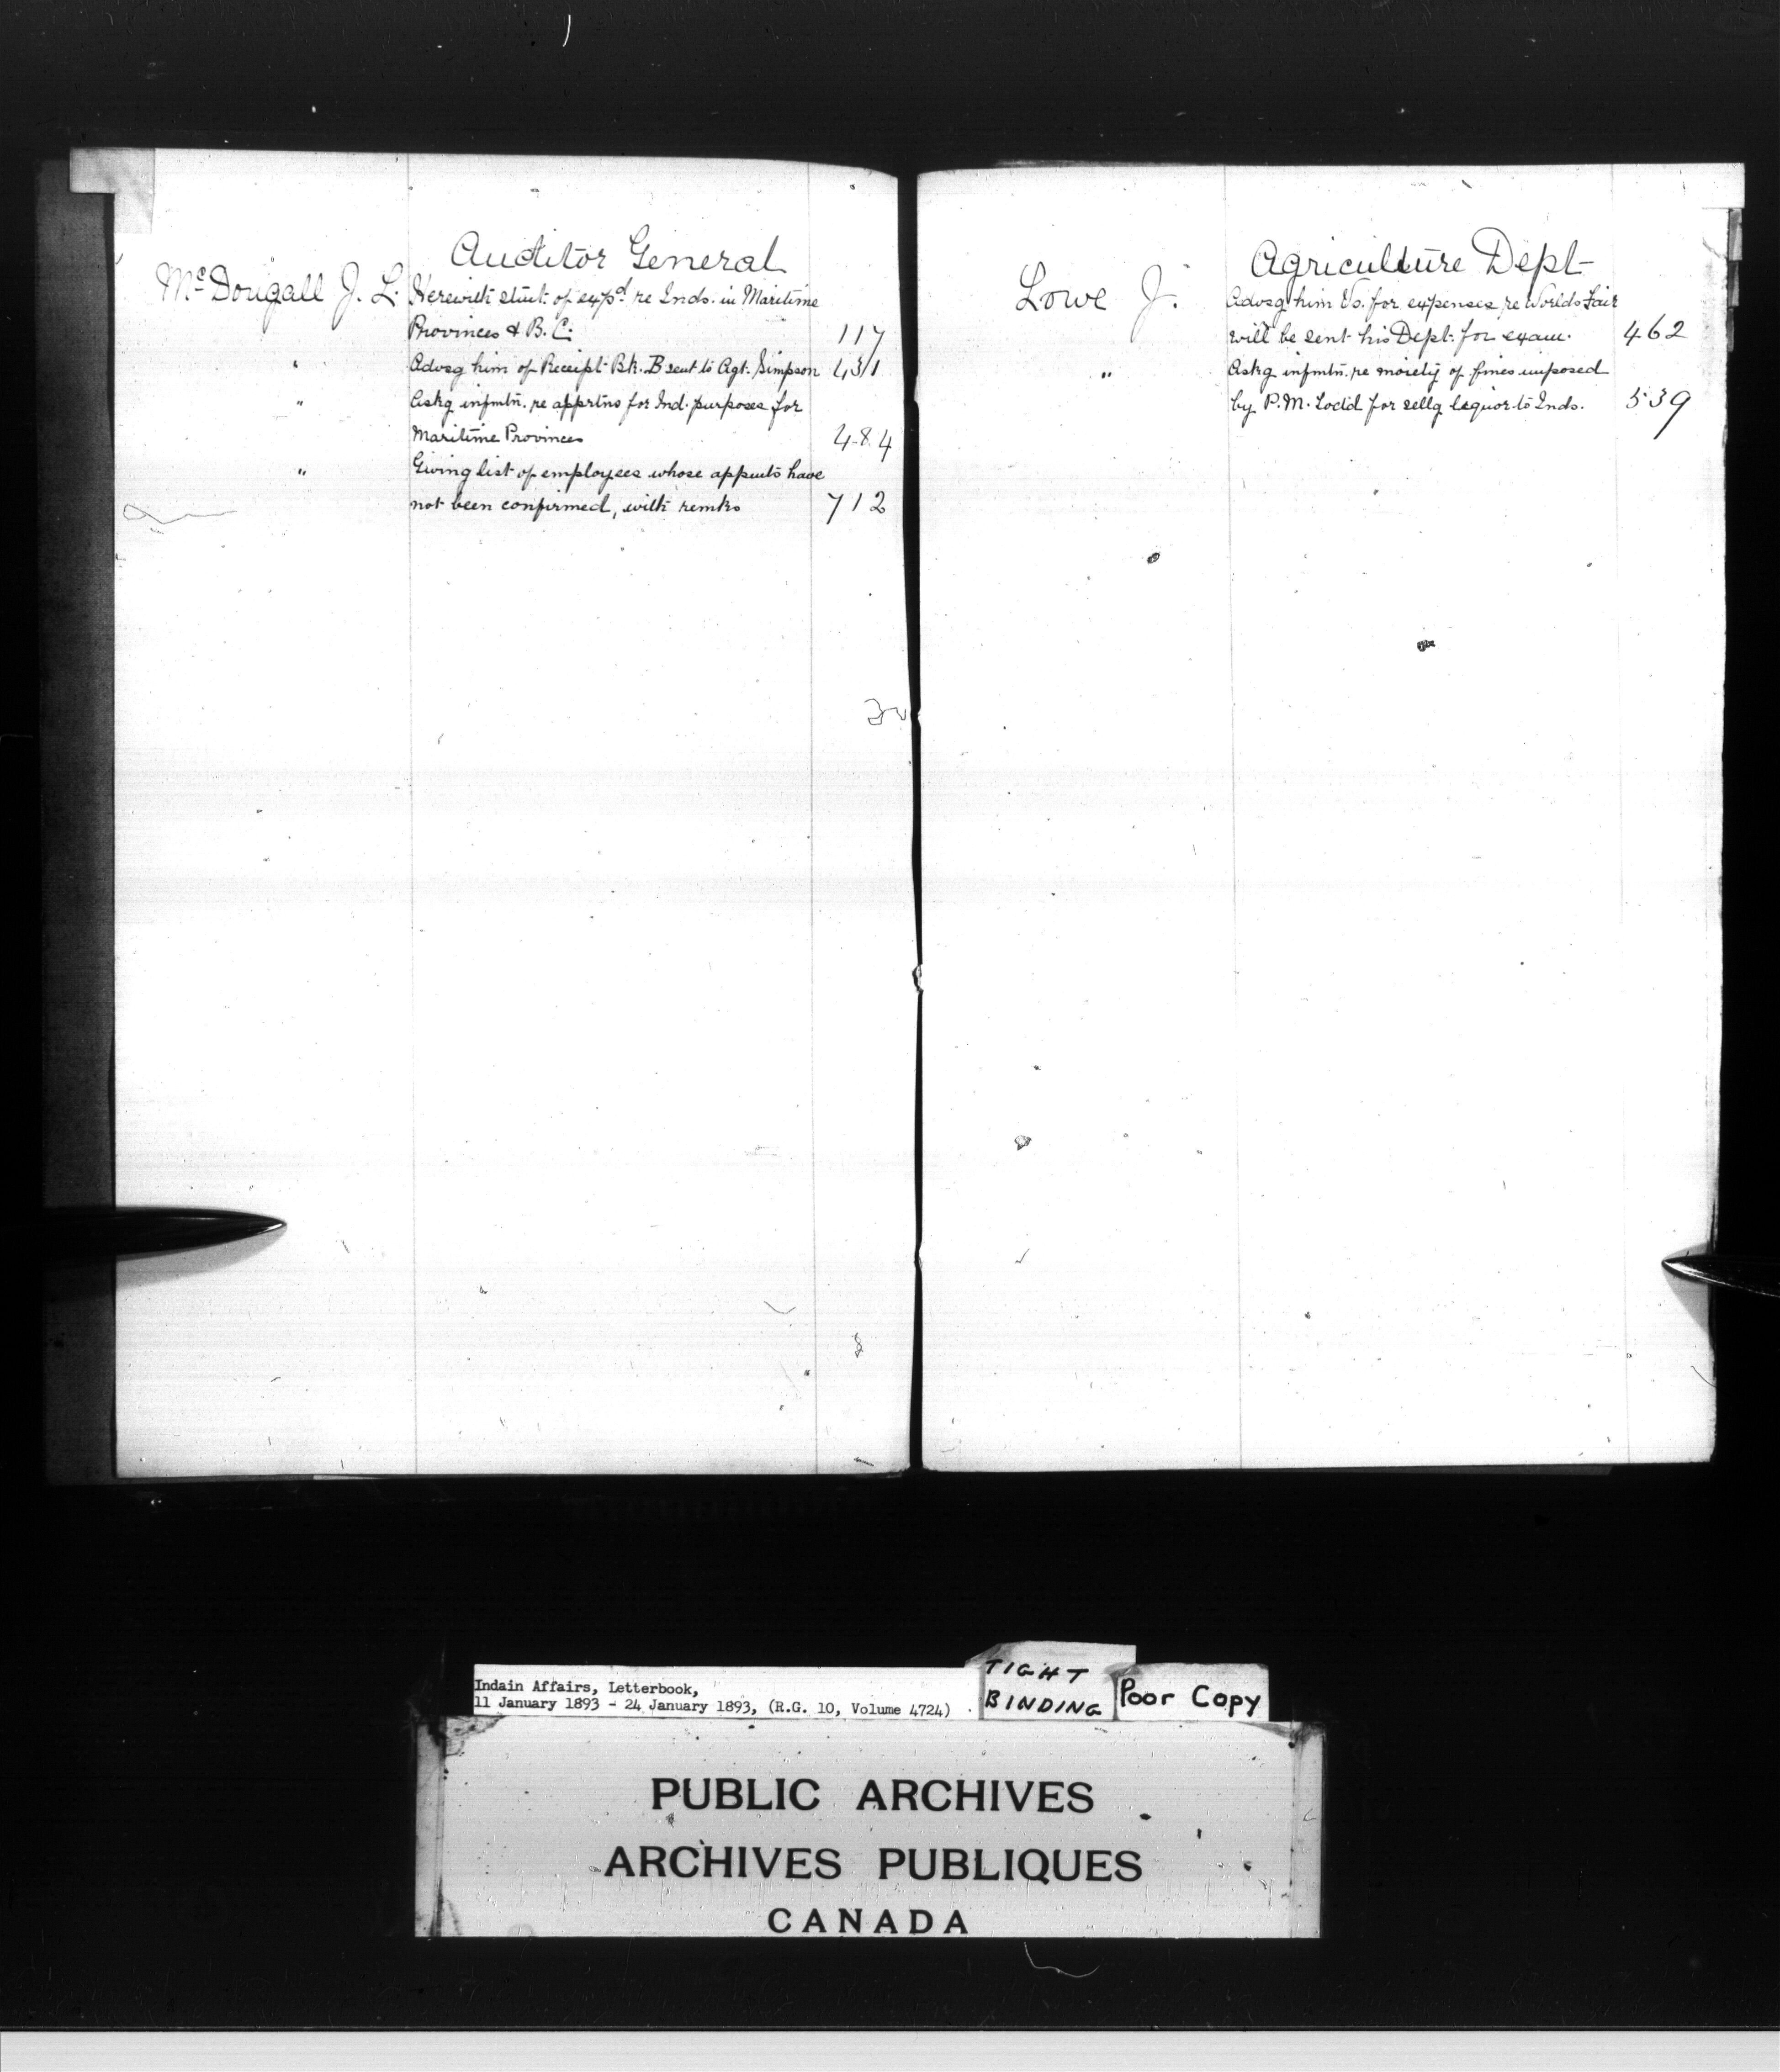 Auditor General
McDougall J. L. Herewith stmt. of expd. re Inds. in Maritime
Provinces & B.C. 117
" Advsg him of Receipt Bk. B sent to Agt. Simpson 431
" Askg infmtn. re apprtns for Ind. purposes for
Maritime Provinces 484
" Giving list of employees whose appmts have
not been confirmed, with remks 712
Agriculture Dept
Lowe J. Advsg him Vs. for expenses re Worlds Fair
will be sent his Dept. for exam. 462
" Askg infmtn. re moiety of fines imposed
by P.M. for sellg liquor to Inds. 539
Indain Affairs, Letterbook,
11 January 1893 - 24 January 1893, (R.G. 10, Volume 4724)
TIGHT
BINDING
Poor Copy
PUBLIC ARCHIVES
ARCHIVES PUBLIQUES
CANADA